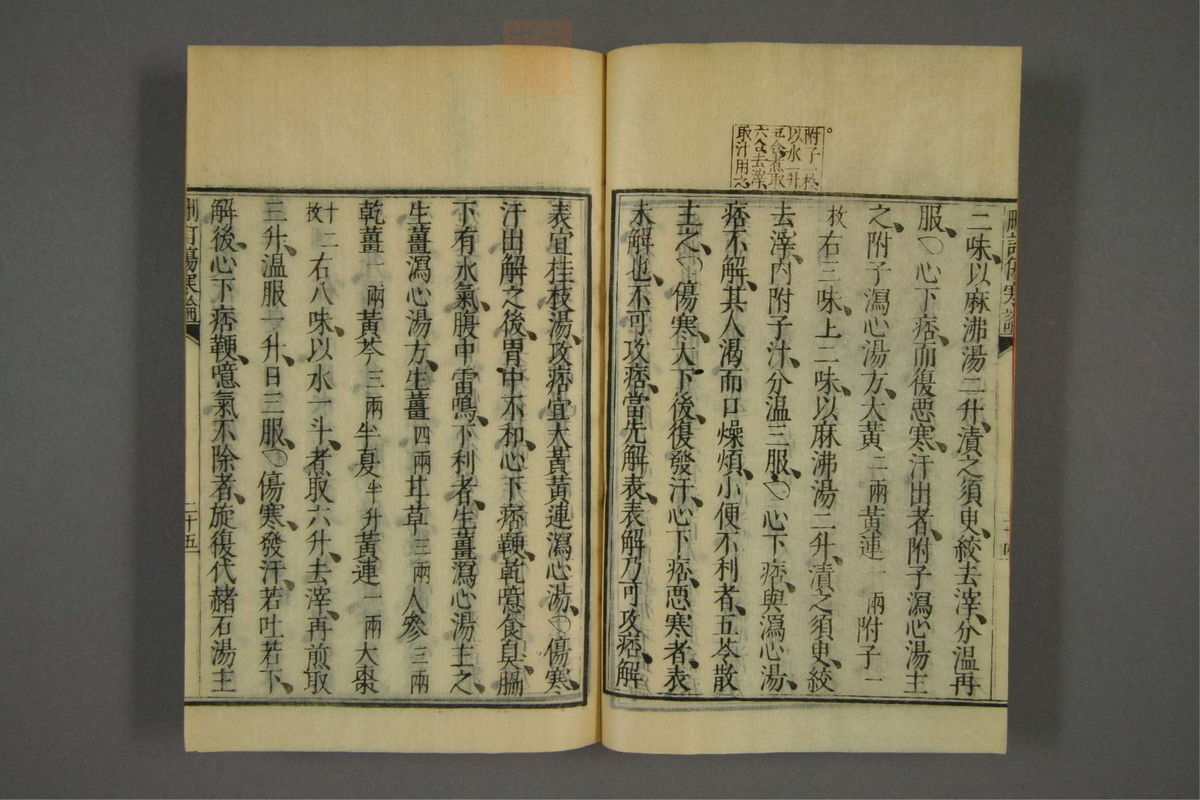 附子一枚
以水一升
五合煮取
六合去滓
取汁用之
二味、以麻沸湯二升、漬之須臾、絞去滓、分溫再
服、○心下痞、而復惡寒、汗出者、附子瀉心湯主
之、附子瀉心湯方、大黃二兩黃連一兩附子一
枚右三味、上二味、以麻沸湯二升、漬之須臾、絞
去滓、內附子汁、分溫三服、○心下痞、與瀉心湯、
痞不解、其人渴而口燥煩、小便不利者、五苓散
主之、○傷寒、大下後、復發汗、心下痞、惡寒者、表
未解也、不可攻痞、當先解表、表解乃可攻痞、解
表宜桂枝湯、攻痞宜大黃黃連瀉心湯、○傷寒、
汗出解之後、胃中不和、心下痞鞕、乾噫食臭、脇
下有水氣、腹中雷鳴、下利者、生薑瀉心湯主之、
生薑瀉心湯方、生薑四兩甘草三兩人參三兩
乾薑一兩黃芩三兩半夏半升黃連一兩大棗
十二枚右八味、以水一斗、煮取六升、去滓、再煎取
三升、溫服一升、日三服、○傷寒、發汗、若吐若下、
解後、心下痞鞕、噫氣不除者、旋復代赭石湯主
刪訂傷寒論
二十五